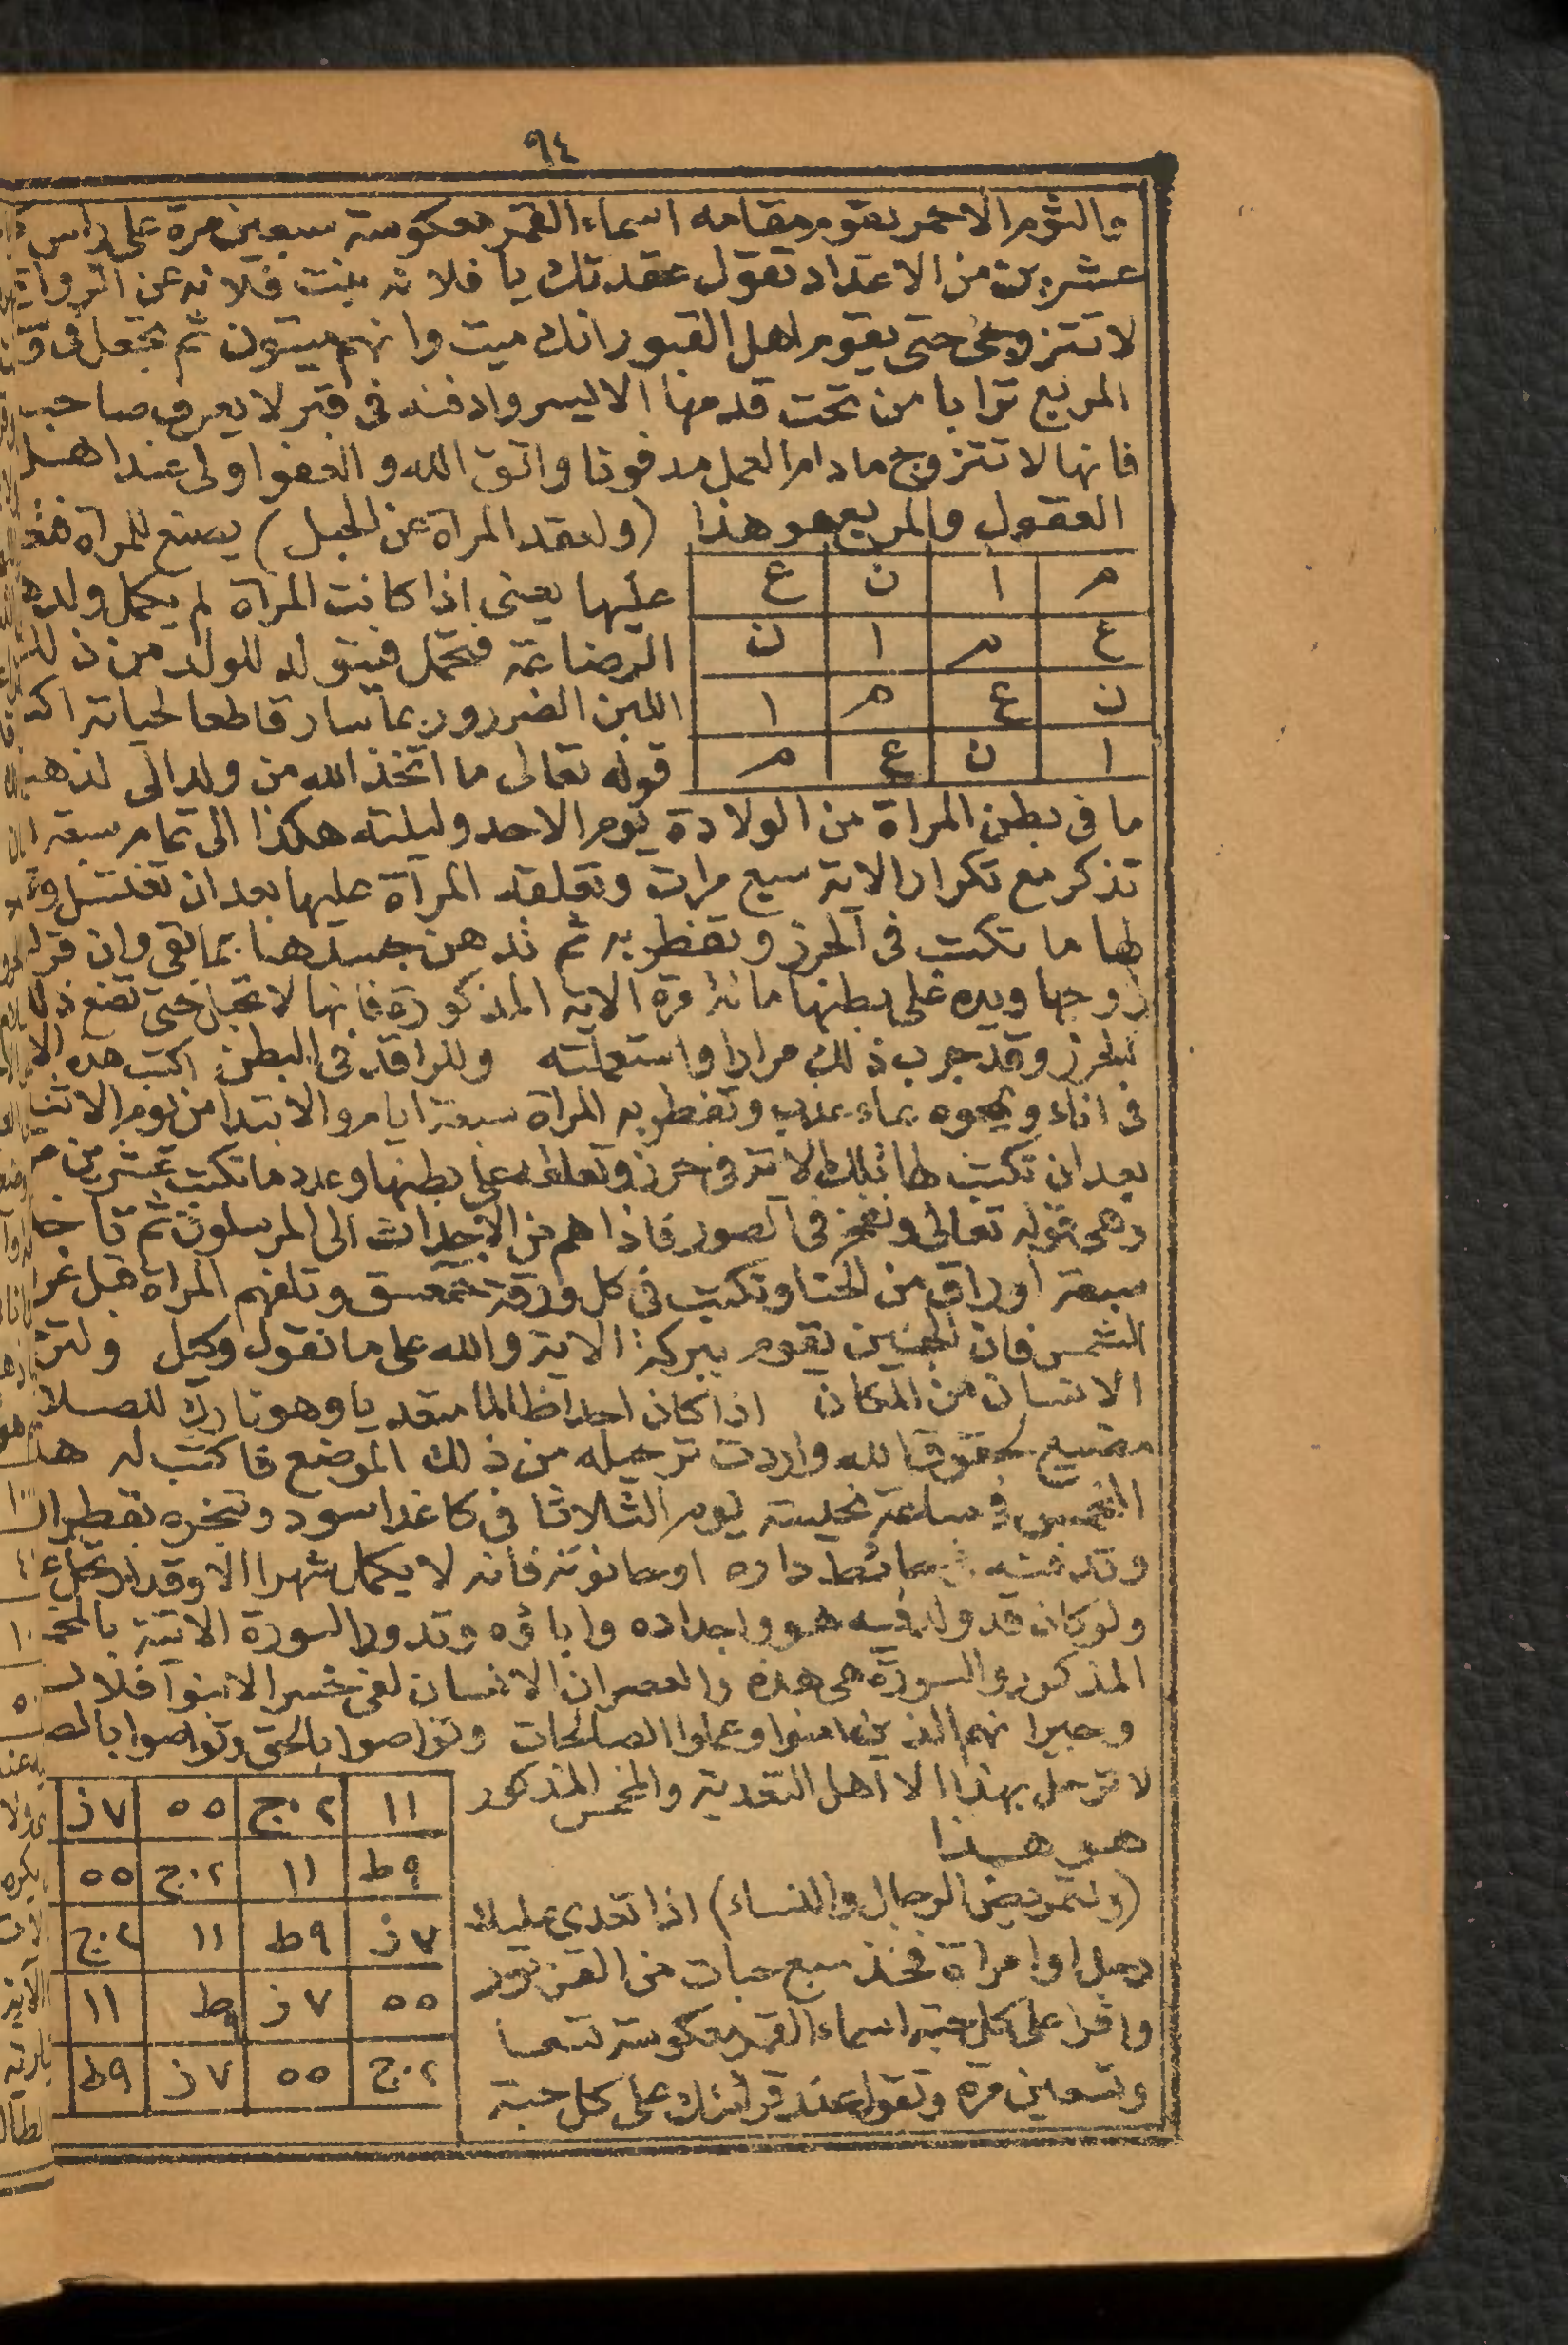 ٩٤
والثوم الاحمر يقوم مقامه اسماء القمر معكوسة سبعين مرة على راس
عشرين من الاعداد تقول عقدتك يا فلانه بنت فلانه عن الزواج
لا تتزوجى حتى يقوم اهل القبور انك ميت وانهم ميتون ثم تجعل فى
المربع ترابا من تحت قدمها الاليسر وادفنه فى قبر لا يعرف صاحب
فانها لا تتزوج ما دام العمل مدفونا واتق الله والعفو اولى عند اهل
العقول والمربع هو هذا (ولعقد المراة عن الحبل) يصنع للمراة
م ا ن ع
ع م ا ن
ن ع م ا
ا ن ع م
عليها يعنى اذا كانت المراة لم يكمل ولدها
الرضاعة فتحمل فيتولد للولد من ذلك
اللبن الضرر وربما سار قاطعا لحياته اكتب
قوله تعالى ما اتخذ الله من ولد الى لذهب
ما فى بطن المراة من الولادة يوم الاحد وليلته هكذا الى تمام سبعة
تذكر مع تكرار الاية سبع مرات وتعلقه المراة عليها بعد ان تغتسل
لها ما تكتب فى الحرز وتفطر به ثم تدهن جسدها بما بقى وان قرا
زوجها ويده على بطنها مائة مرة الاية المذكورة فانها لا تحبل حتى تضع ذلك
الحرز وقد جرب ذلك مرارا واستعملته وللراقد فى البطن اكتب هذه
فى اناء ويمحوه بماء عذب وتفطر به المراة سبعة ايام والابتدا من يوم
بعد ان تكتب لها تلك الاية فى حرز وتعلقه على بطنها وعدد ما تكتب عشرين
وهى قوله تعالى ونفخ فى الصور فاذا هم من الاجداث الى المرسلون ثم
سبعة اوراق من الحنا وتكتب فى كل ورقة حمعسق وتلقهم المراة قبل
الشمس فان الجنين يقوم ببركة الاية والله على ما نقول وكيل
الانسان من المكان اذا كان احد اظالما متعديا وهو تارك للصلاة
مضيع لحقوق الله واردت ترحيله من ذلك الموضع فاكتب له هذا
المخمس فى ساعة نحيسة يوم الثلاثا فى كاغد اسود وتبخره بقطران
وتدفنه بحائط داره او حانوته فانه لا يكمل شهرا الا وقد ارتحل
ولو كان قد ولد فيه هو واجداده واباؤه وتدور السورة الاتية بالمخمس
المذكور والسورة هى هذه والعصر ان الانسان لفى خسر الا
وجيرانهم الذين امنوا وعملوا الصالحات وتواصوا بالحق وتواصوا
لا ترحل بهذا الا اهل التعدية والمخمس المذكور
هو هذا
١١ ٢٠ج ٥٥ ٧ز
٩ط ١١ ٢٠ج ٥٥
٧ز ٩ط ١١ ٢٠ج
٥٥ ٧ز ٩ط ١١
٢٠ج ٥٥ ٧ز ٩ط
(ولتمريض الرجال والنساء) اذا تعدى عليك
رجل او امراة فخذ سبع حبات من
واقرا على كل حبة اسماء القمر معكوسة تسعا
وتسعين مرة وتقول عند قرائتك على كل حبة